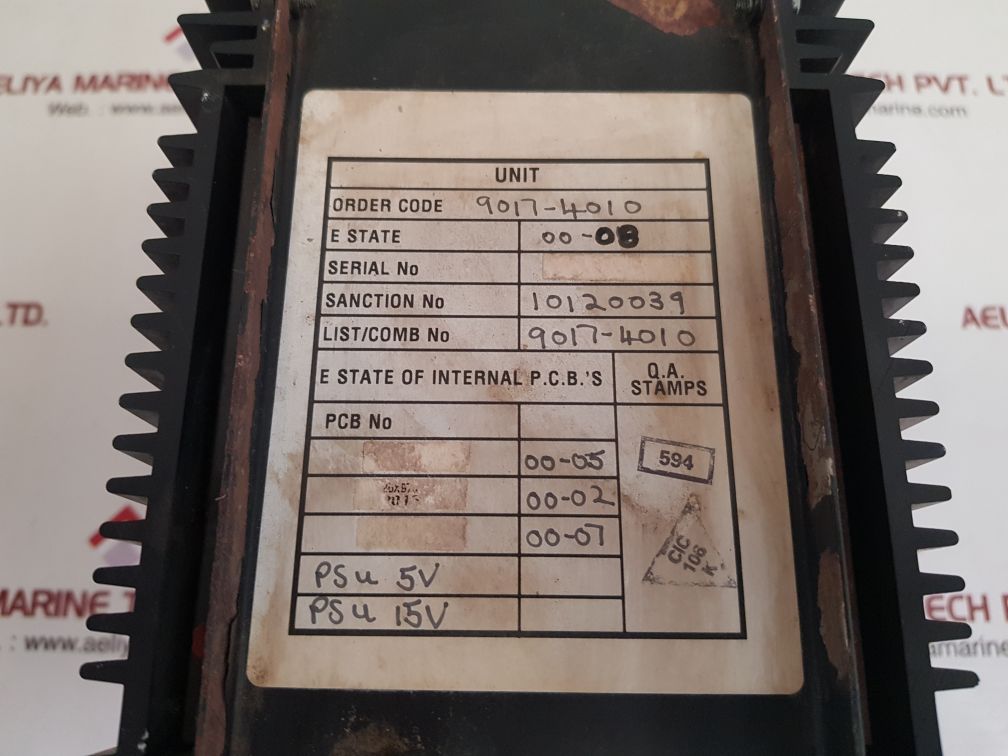 AELIYA MARINE
TECH PVT. LT
Web. : www.aeli
amarine.com
UNIT
ORDER CODE 9017-4010
E STATE 00-08
SERIAL No
SANCTION No 10120039
LTD.
AEL
LIST/COMB No 9017-4010
E STATE OF INTERNAL P.C.B.'S Q.A. STAMPS
PCB No
00-05
594
00-02
00-07
CIC
108
K
PSU 5V
MARINE T
ECH P
PSU 15V
: www.aeliy
amarine